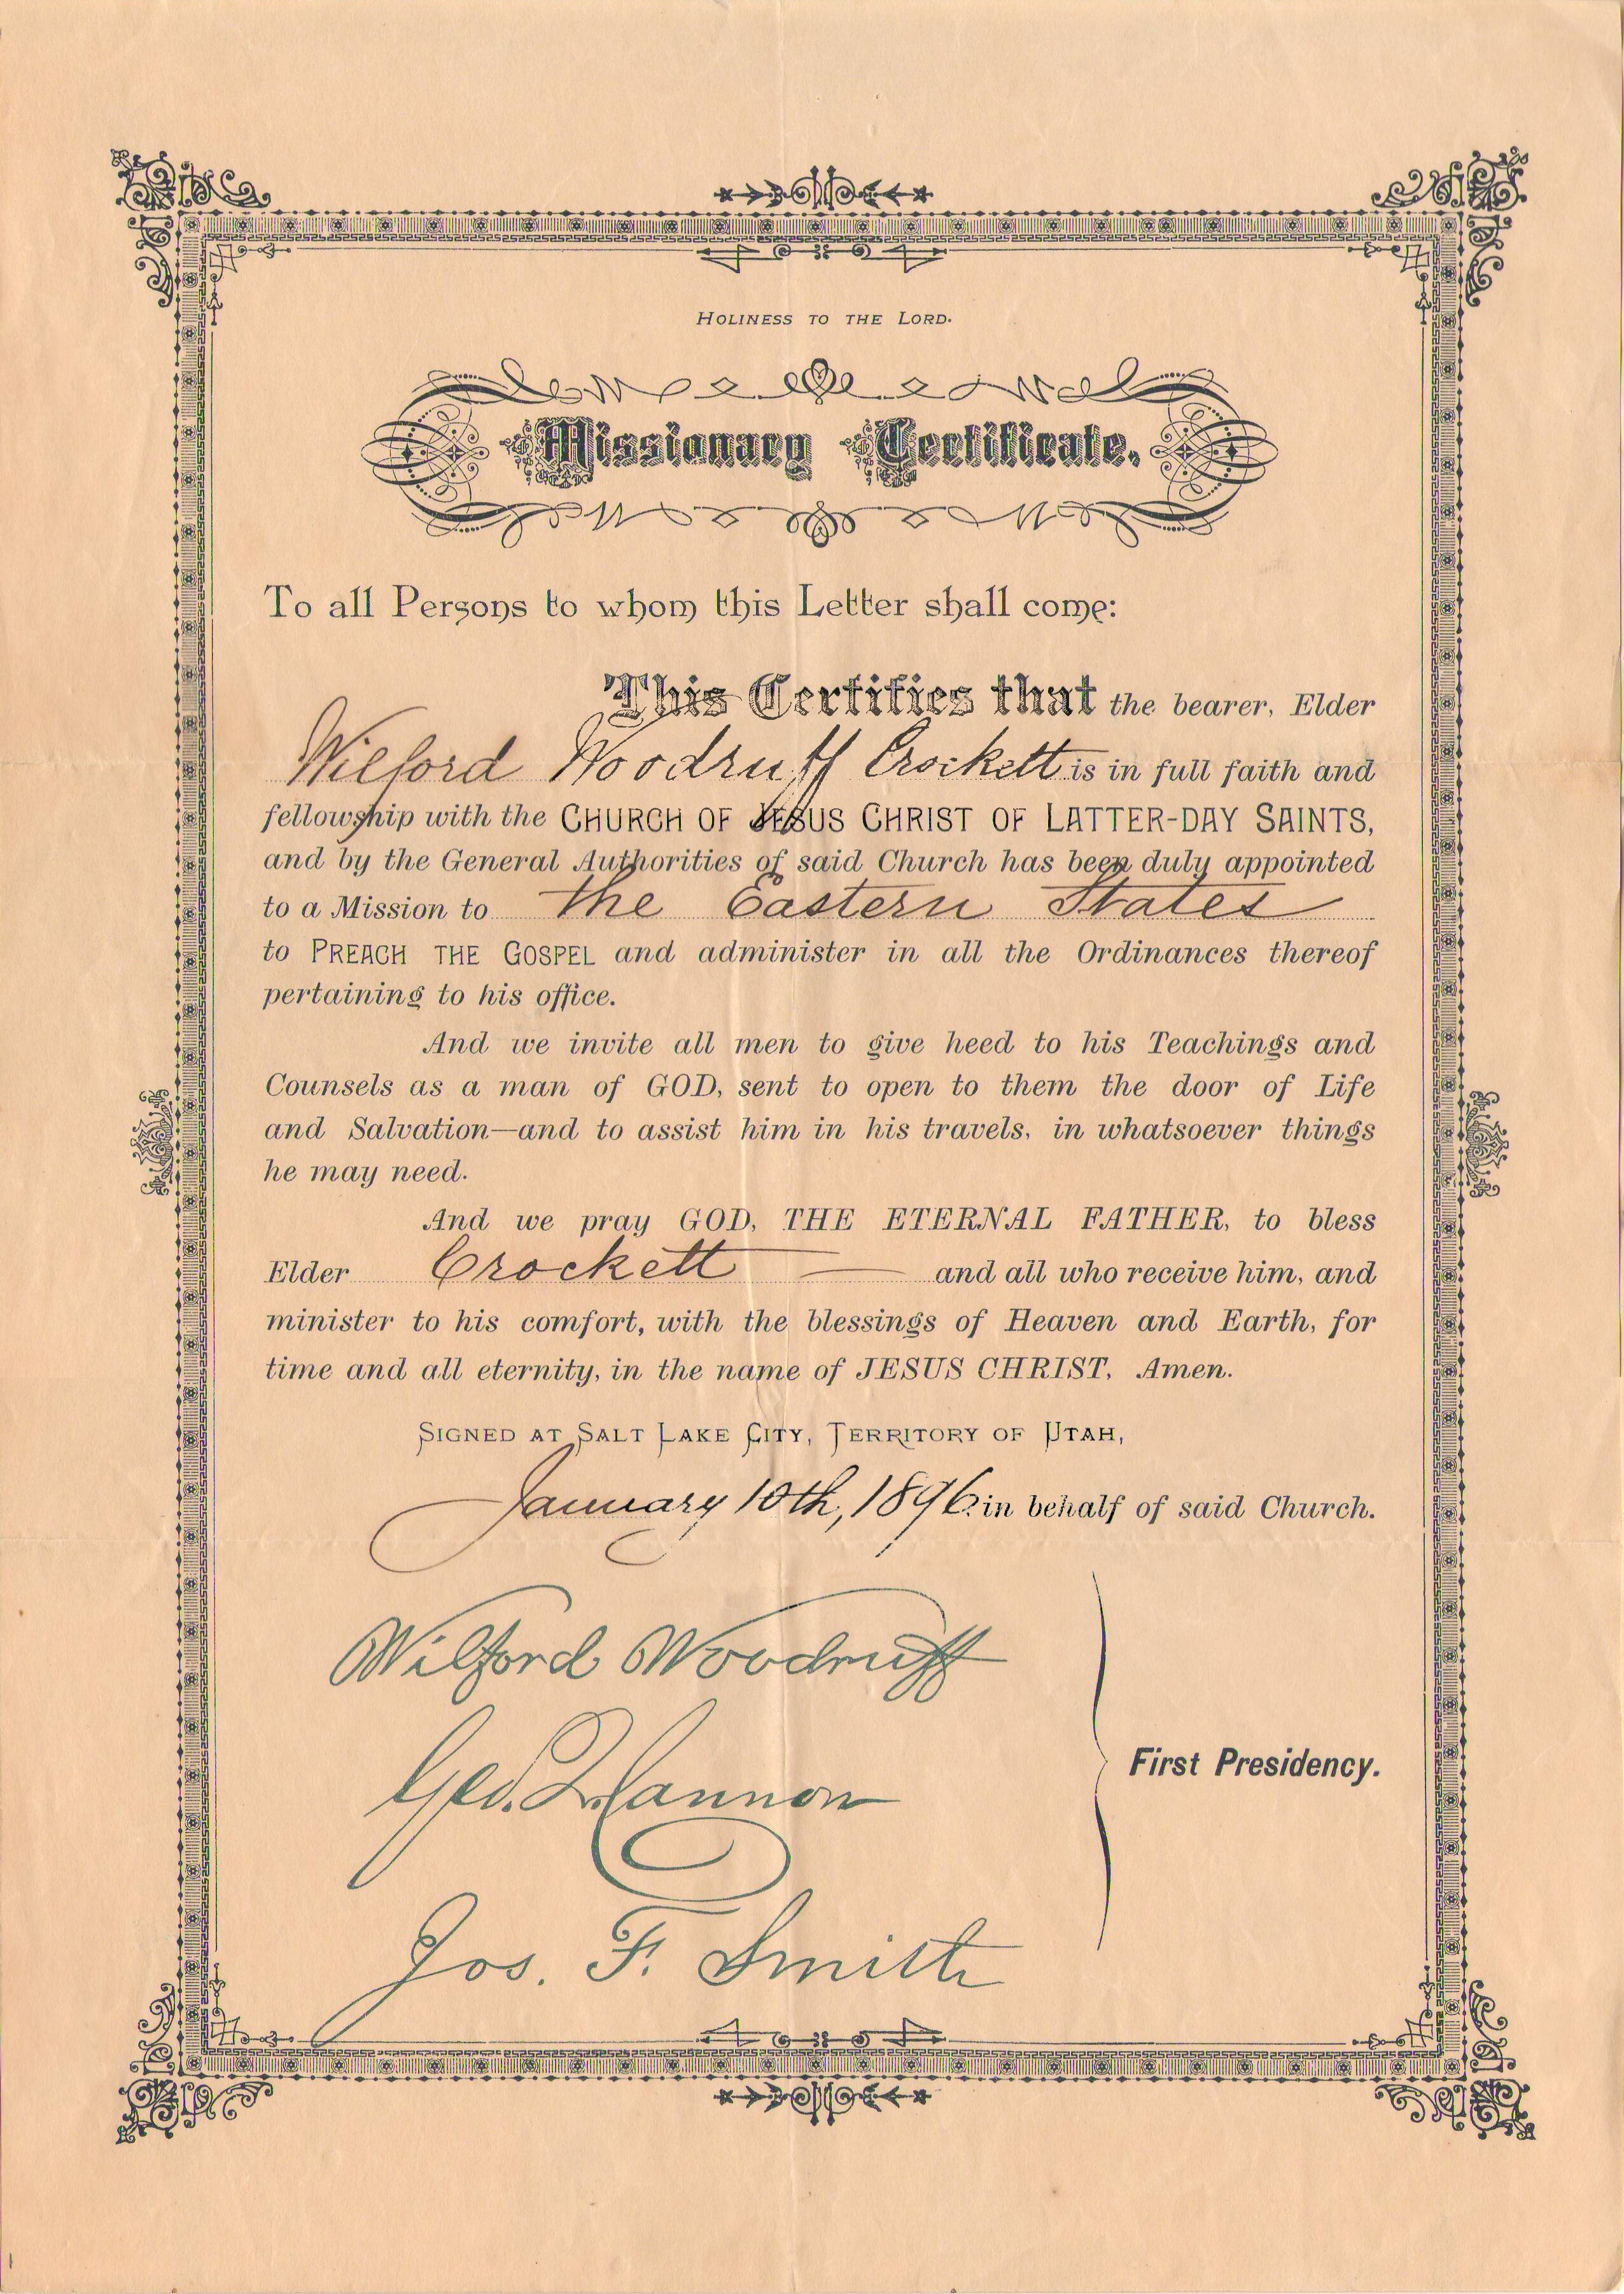 HOLINESS TO THE LORD.
Missionary Certificate.
To all Persons to whom this Letter shall come:
This Certifies that the bearer, Elder
Wilford Woodruff Crockett is in full faith and
fellowship with the CHURCH OF JESUS CHRIST OF LATTER-DAY SAINTS,
and by the General Authorities of said Church has been duly appointed
to a Mission to the Eastern States
to PREACH THE GOSPEL and administer in all the Ordinances thereof
pertaining to his office.
And we invite all men to give heed to his Teachings and
Counsels as a man of GOD, sent to open to them the door of Life
and Salvation—and to assist him in his travels, in whatsoever things
he may need.
And we pray GOD, THE ETERNAL FATHER, to bless
Elder Crockett — and all who receive him, and
minister to his comfort, with the blessings of Heaven and Earth, for
time and all eternity, in the name of JESUS CHRIST, Amen.
SIGNED AT SALT LAKE CITY, TERRITORY OF UTAH,
January 10th, 1896 in behalf of said Church.
Wilford Woodruff
Geo. Q. Cannon
First Presidency.
Jos. F. Smith